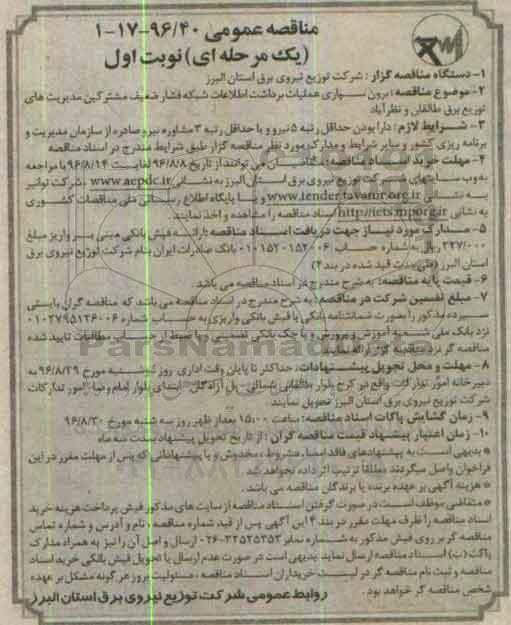 مناقصه عمومی ۹۶/۴۰-۱۷-۱
(یک مرحله ای) نوبت اول
۱- دستگاه مناقصه گزار : شرکت توزیع نیروی برق استان البرز
۲- موضوع مناقصه : برون سپاری عملیات برداشت اطلاعات شبکه فشار ضعیف مشترکین مدیریت های
توزیع برق طالقان و نظرآباد
۳- شرایط لازم : دارا بودن حداقل رتبه ۵ نیرو و یا حداقل رتبه ۳ مشاوره نیرو صادره از سازمان مدیریت و
برنامه ریزی کشور و سایر شرایط و مدارک مورد نظر مناقصه گزار طبق شرایط مندرج در اسناد مناقصه
۴- مهلت خرید اسناد مناقصه : متقاضیان می توانند از تاریخ ۹۶/۸/۸ لغایت ۹۶/۸/۱۴ با مراجعه
به وب سایتهای شرکت توزیع نیروی برق استان البرز به نشانی www.aepdc.ir ، شرکت توانیر
به نشانی www.tender.tavanir.org.ir و یا پایگاه اطلاع رسانی ملی مناقصات کشوری
به نشانی http://iets.mporg.ir اسناد مناقصه را مشاهده و اخذ نمایند .
۵- مدارک مورد نیاز جهت دریافت اسناد مناقصه : ارائه فیش بانکی مبنی بر واریز مبلغ
۲۲۷/۰۰۰ ریال به شماره حساب ۰۱۰۱۵۲۰۱۵۲۰۰۶ بانک صادرات ایران بنام شرکت توزیع نیروی برق
استان البرز (طی مدت قید شده در بند ۴)
۶- قیمت پایه مناقصه : به شرح مندرج در اسناد مناقصه می باشد .
۷- مبلغ تضمین شرکت در مناقصه : به شرح مندرج در اسناد مناقصه می باشد که مناقصه گران بایستی
سپرده مذکور را بصورت ضمانتنامه بانکی یا فیش بانکی واریزی به حساب شماره ۰۱۰۲۷۹۵۱۲۶۰۰۶
نزد بانک ملی شعبه آموزش و پرورش و یا چک بانکی تضمینی و یا ضبط از حساب مطالبات تایید شده
مناقصه گر نزد مناقصه گزار ارائه نمایند
۸- مهلت و محل تحویل پیشنهادات : حداکثر تا پایان وقت اداری روز دوشنبه مورخ ۹۶/۸/۲۹ به
دبیرخانه امور تدارکات واقع در کرج بلوار طالقانی شمالی- پل آزادگان- ابتدای بلوار امام رضا- امور تدارکات
شرکت توزیع نیروی برق استان البرز تحویل نمایند .
۹- زمان گشایش پاکات اسناد مناقصه : ساعت ۱۵:۰۰ بعد از ظهر روز سه شنبه مورخ ۹۶/۸/۳۰
۱۰- زمان اعتبار پیشنهاد قیمت مناقصه گران : از تاریخ تحویل پیشنهاد بمدت سه ماه
* بدیهی است به پیشنهادهای فاقد امضا، مشروط ، مخدوش و یا پیشنهاداتی که پس از مهلت مقرر در این
فراخوان واصل میگردند مطلقا ترتیب اثر داده نخواهد شد .
* هزینه آگهی بر عهده برنده یا برندگان مناقصه می باشد .
* متقاضی موظف است در صورت گرفتن اسناد مناقصه از سایت های مذکور فیش پرداخت هزینه خرید
اسناد مناقصه را ظرف مهلت مقرر در بند ۴ این آگهی پس از قید شماره مناقصه ، نام و آدرس و شماره تماس
مناقصه گر بر روی فیش مذکور به شماره نمابر ۳۲۵۲۵۳۵۳-۰۲۶ ارسال و اصل آن را نیز به همراه مدارک
پاکت (ب) اسناد مناقصه ارسال نماید بدیهی است در صورت عدم ارسال یا تحویل فیش بانکی خرید اسناد
مناقصه و ثبت نام مناقصه گر در لیست خریداران اسناد مناقصه ، مسئولیت بروز هر گونه مشکل بر عهده
شخص مناقصه گر خواهد بود .
روابط عمومی شرکت توزیع نیروی برق استان البرز
ParsNamadData